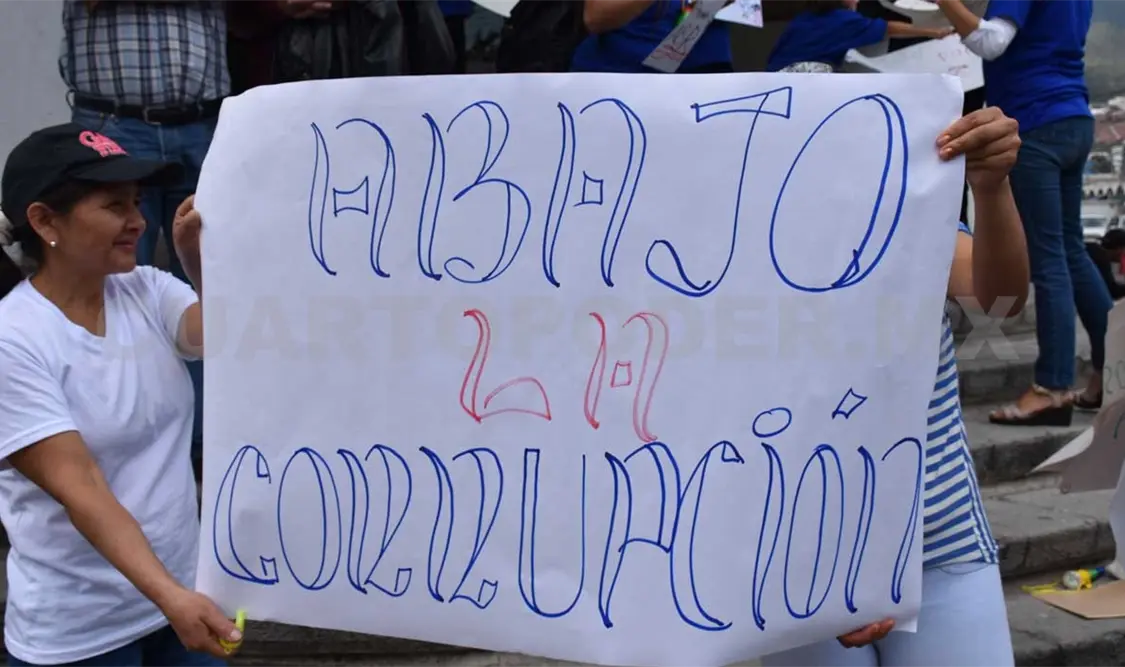 ABAJO
LA
CORRUPCIÓN
CUARTOPODER.MX